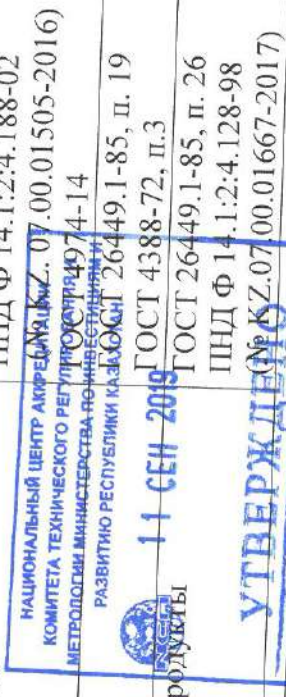 ПНД Ф 14.1:2:4.188-02
(№ KZ. 07.00.01505-2016)
ГОСТ 4974-14
ГОСТ 26449.1-85, п. 19
ГОСТ 4388-72, п.3
ГОСТ 26449.1-85, п. 26
ПНД Ф 14.1:2:4.128-98
(№ KZ.07.00.01667-2017)
НАЦИОНАЛЬНЫЙ ЦЕНТР АККРЕДИТАЦИИ
КОМИТЕТА ТЕХНИЧЕСКОГО РЕГУЛИРОВАНИЯ И
МЕТРОЛОГИИ МИНИСТЕРСТВА ПО ИНВЕСТИЦИЯМ И
РАЗВИТИЮ РЕСПУБЛИКИ КАЗАХСТАН
11 СЕН 2019
NCA
УТВЕРЖДЕНО
родукты